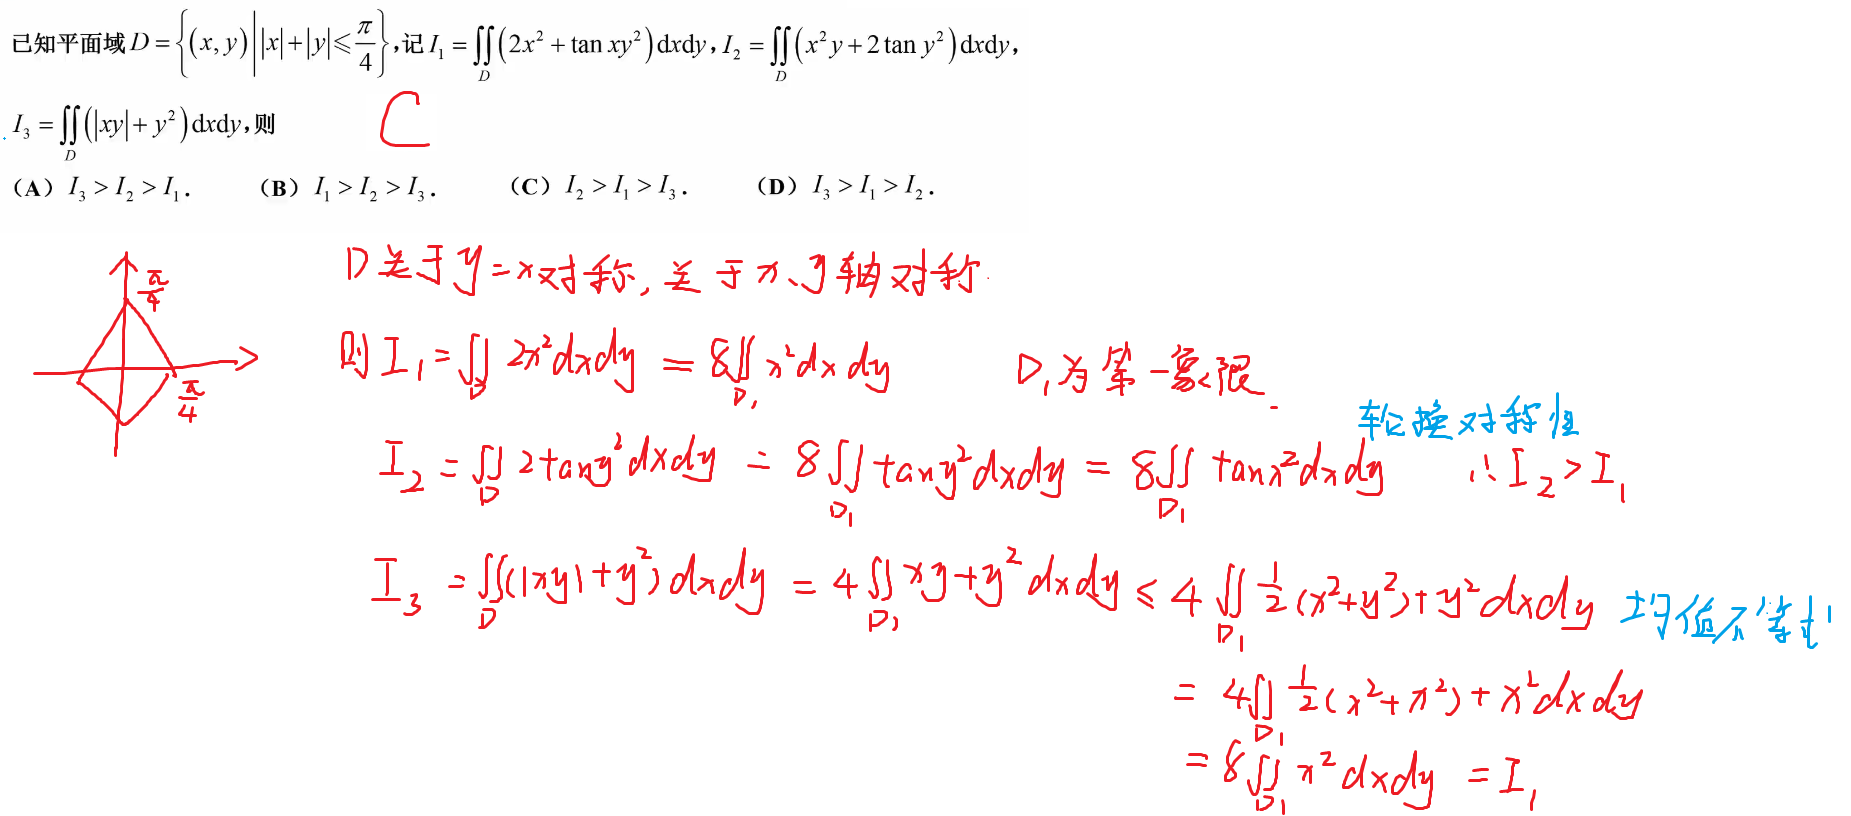 已知平面域 D = {(x, y) | |x| + |y| ≤ π/4}, 记 I₁ = ∬_D (2x² + tan xy²) dxdy, I₂ = ∬_D (x²y + 2 tan y²) dxdy,
I₃ = ∬_D (|xy| + y²) dxdy, 则 C
(A) I₃ > I₂ > I₁. (B) I₁ > I₂ > I₃. (C) I₂ > I₁ > I₃. (D) I₃ > I₁ > I₂.
π/4
π/4
D关于y=x对称, 关于x、y轴对称.
则 I₁ = ∬_D 2x² dxdy = 8∬_D₁ x² dxdy D₁为第一象限.
轮换对称性
I₂ = ∬_D 2tany² dxdy = 8∬_D₁ tany² dxdy = 8∬_D₁ tanx² dxdy ∴ I₂ > I₁
I₃ = ∬_D (|xy| + y²) dxdy = 4∬_D₁ xy + y² dxdy ≤ 4∬_D₁ 1/2 (x² + y²) + y² dxdy 均值不等式
= 4∬_D₁ 1/2 (x² + x²) + x² dxdy
= 8∬_D₁ x² dxdy = I₁